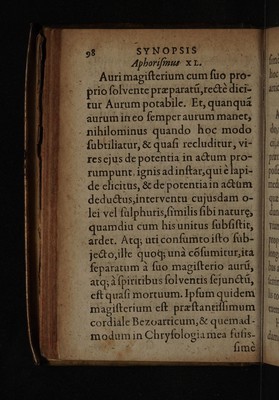 98 SYNOPSIS
Aphorismus XL.
Auri magisterium cum suo pro-
prio solvente præparatũ, rectè dici-
tur Aurum potabile. Et, quanquã
aurum in eo semper aurum manet,
nihilominus quando hoc modo
subtiliatur, & quasi recluditur, vi-
res ejus de potentia in actum pro-
rumpunt. ignis ad instar, qui è lapi-
de elicitus, & de potentia in actum
deductus, interventu cujusdam o-
lei vel sulphuris, similis sibi naturę,
quamdiu cum his unitus subsistit,
ardet. Atq; uti consumto isto sub-
jecto, ille quoq; unà cõsumitur, ita
separatum à suo magisterio aurũ,
atq; à spiritibus solventis sejunctũ,
est quasi mortuum. Ipsum quidem
magisterium est præstantissimum
cordiale Bezoarticum, & quemad-
modum in Chrysologia mea fusis-
simè